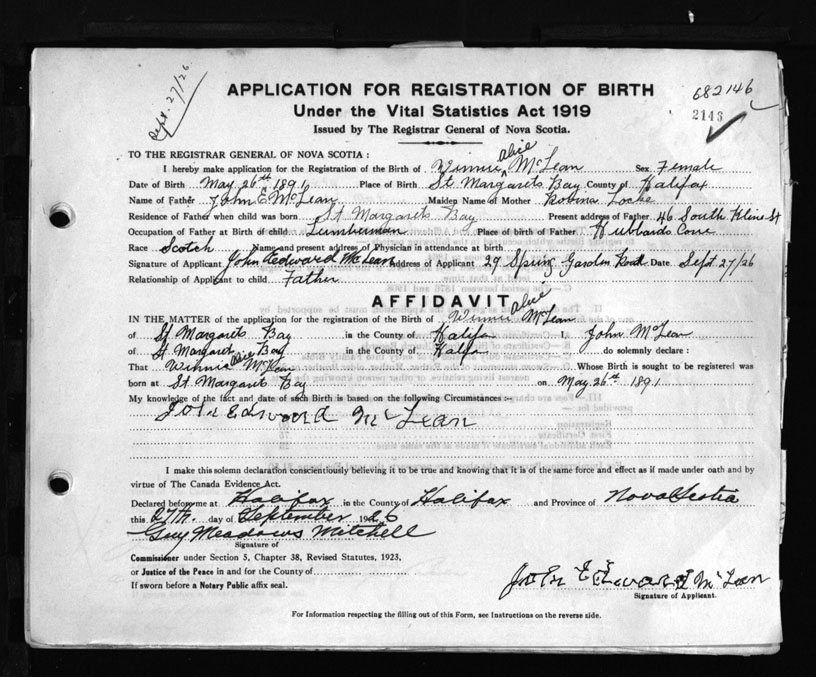 Sept. 27/26
682146
2143
APPLICATION FOR REGISTRATION OF BIRTH
Under the Vital Statistics Act 1919
Issued by The Registrar General of Nova Scotia.
TO THE REGISTRAR GENERAL OF NOVA SCOTIA :
I hereby make application for the Registration of the Birth of Winnie Alice McLean Sex Female
Date of Birth May 26th 1891 Place of Birth St Margarets Bay County of Halifax
Name of Father John E McLean Maiden Name of Mother Rovina Locke
Residence of Father when child was born St Margarets Bay Present address of Father 46 South Kline St
Occupation of Father at Birth of child Lumberman Place of birth of Father Hubbards Cove
Race Scotch Name and present address of Physician in attendance at birth
Signature of Applicant John Edward McLean Address of Applicant 29 Spring Garden Road Date Sept 27/26
Relationship of Applicant to child Father
AFFIDAVIT
IN THE MATTER of the application for the registration of the Birth of Winnie Alice McLean
of St Margarets Bay in the County of Halifax I, John McLean
of St Margaret Bay in the County of Halifax do solemnly declare :
That Winnie Alice McLean Whose Birth is sought to be registered was
born at St Margarets Bay on May 26th 1891
My knowledge of the fact and date of such Birth is based on the following Circumstances :-
John Edward McLean
I make this solemn declaration conscientiously believing it to be true and knowing that it is of the same force and effect as if made under oath and by
virtue of The Canada Evidence Act.
Declared before me at Halifax in the County of Halifax and Province of Nova Scotia
this 27th. day of September 1926
Guy Meadows Mitchell
Signature of
Commissioner under Section 5, Chapter 38, Revised Statutes, 1923,
or Justice of the Peace in and for the County of
If sworn before a Notary Public affix seal.
John Edward McLean
Signature of Applicant.
For Information respecting the filling out of this Form, see Instructions on the reverse side.